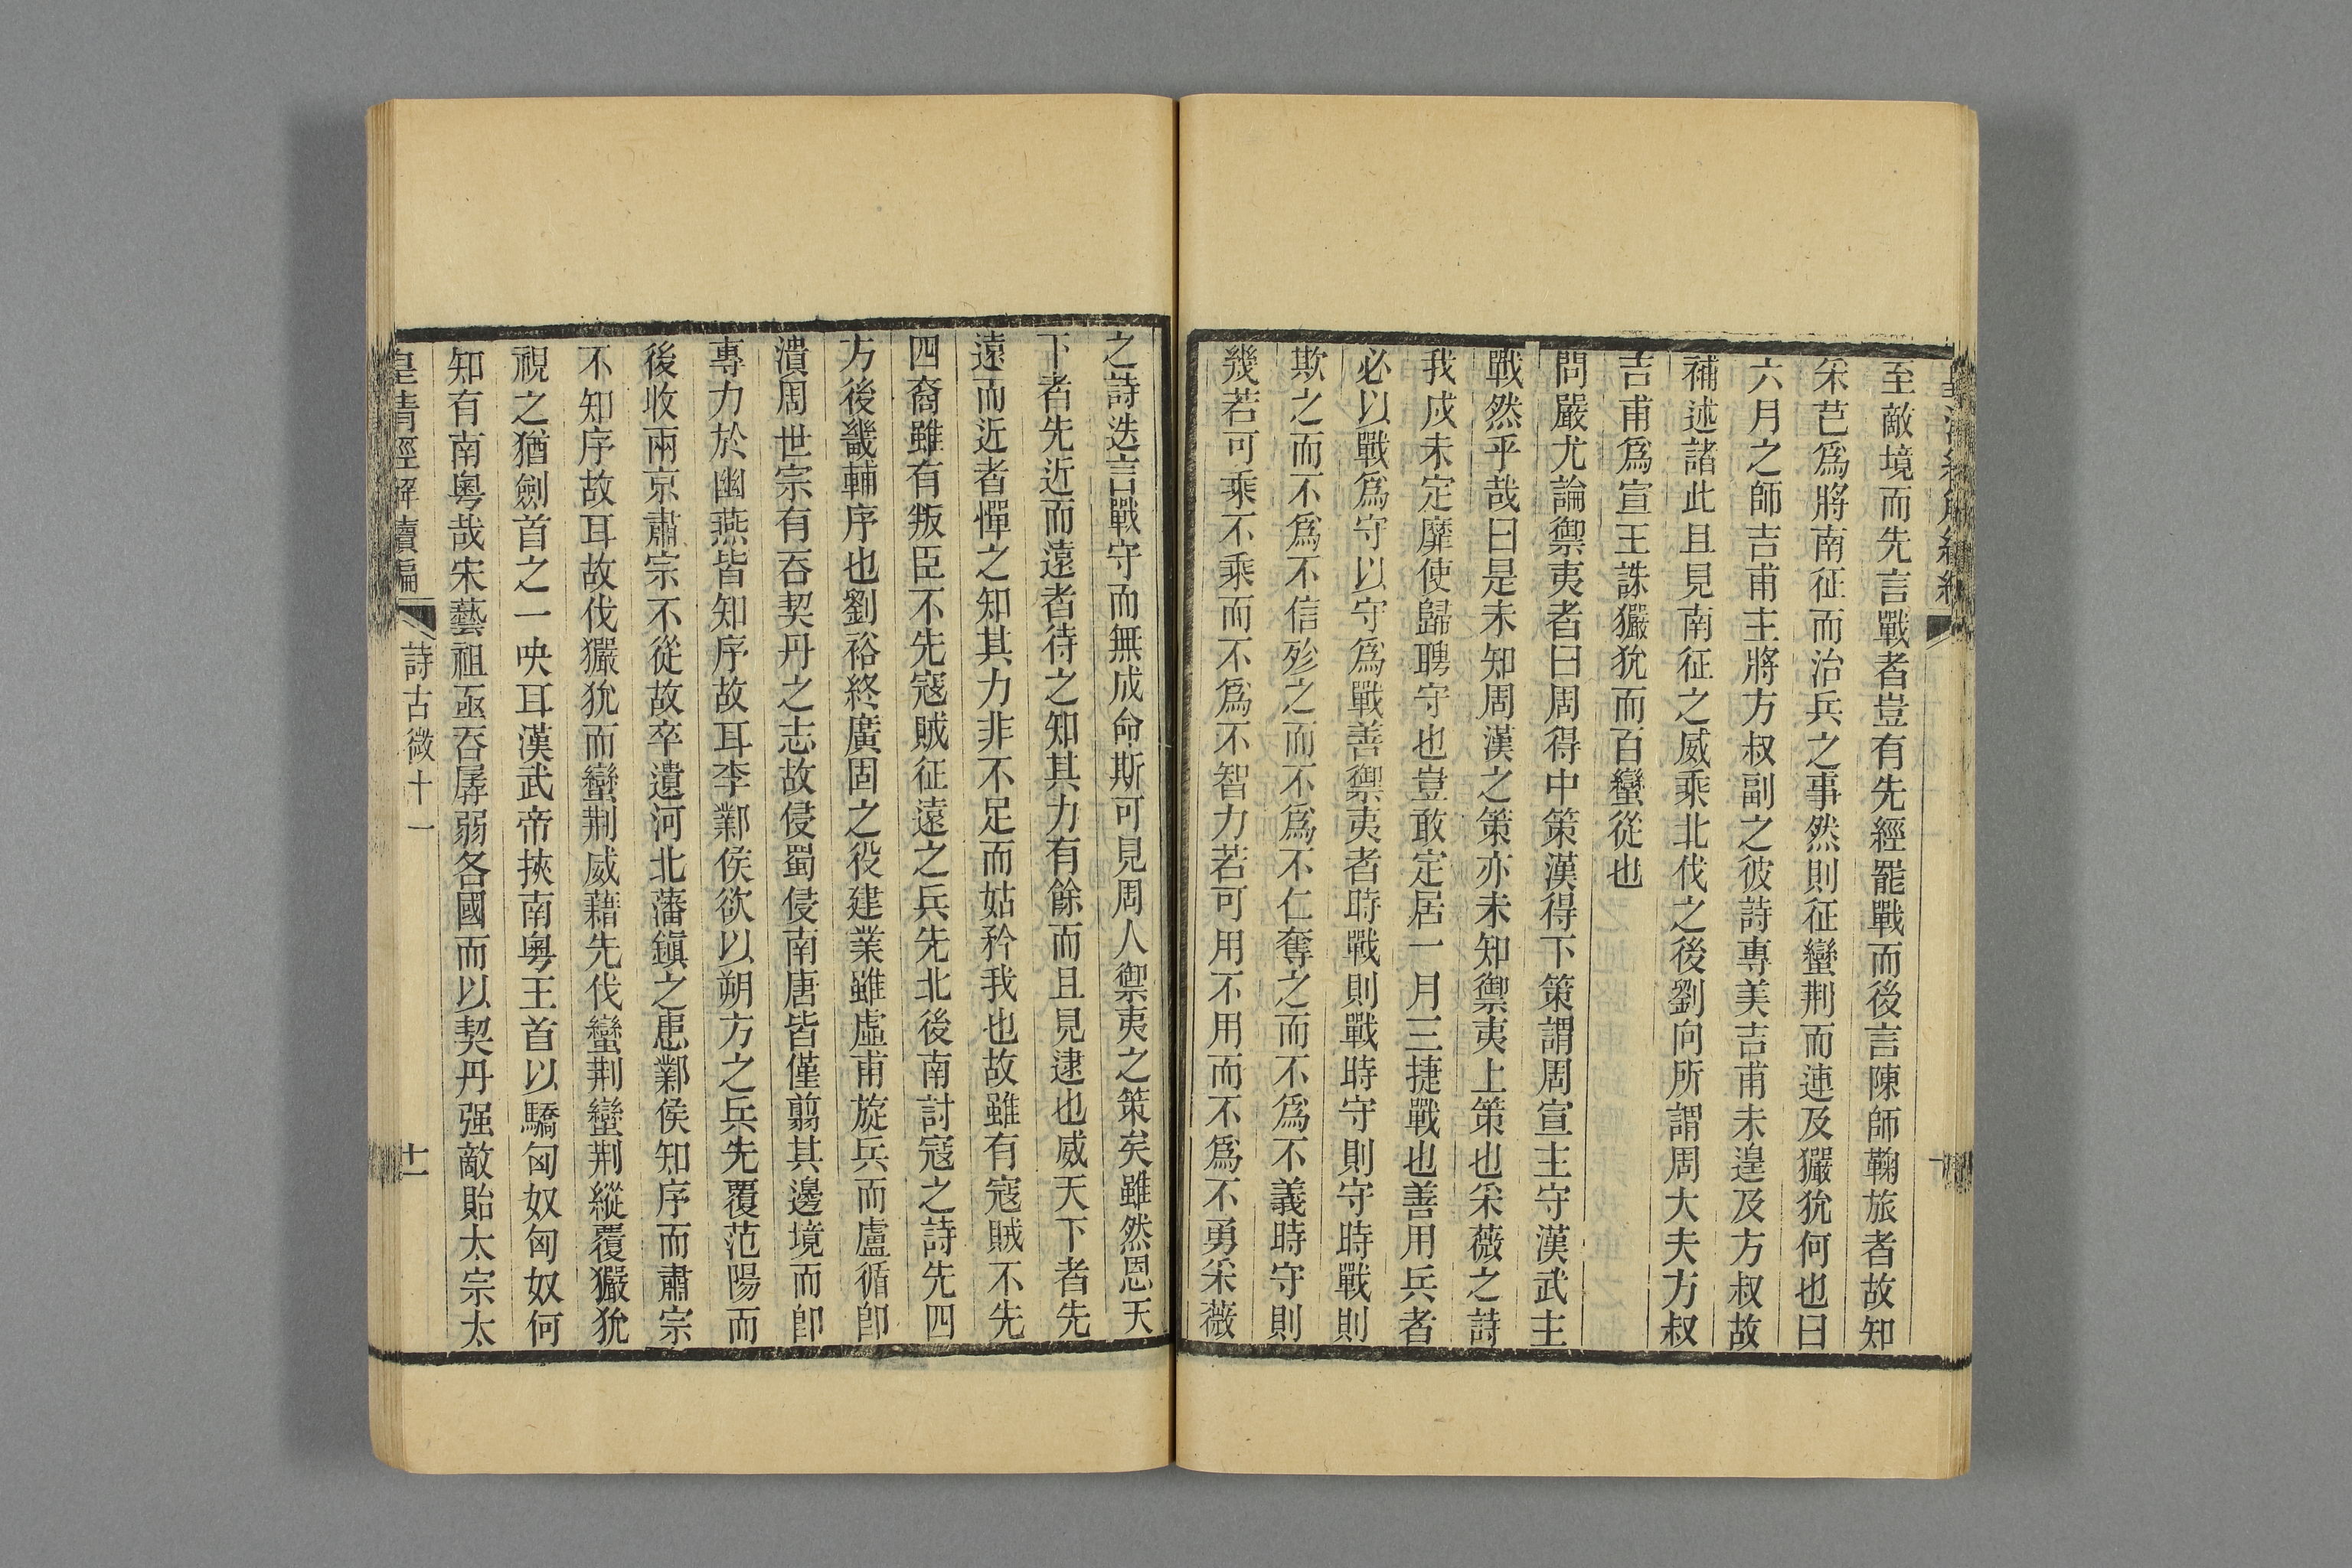 至敵境而先言戰者豈有先經罷戰而後言陳師鞠旅者故知
采芑爲將南征而治兵之事然則征蠻荆而連及玁狁何也曰
六月之師吉甫主將方叔副之彼詩專美吉甫未遑及方叔故
補述諸此且見南征之威乘北伐之後劉向所謂周大夫方叔
吉甫爲宣王誅玁狁而百蠻從也
問嚴尤論禦夷者曰周得中策漢得下策謂周宣主守漢武主
戰然乎哉曰是未知周漢之策亦未知禦夷上策也采薇之詩
我戍未定靡使歸聘守也豈敢定居一月三捷戰也善用兵者
必以戰爲守以守爲戰善禦夷者時戰則戰時守則守時戰則
欺之而不爲不信殄之而不爲不仁奪之而不爲不義時守則
幾若可乘不乘而不爲不智力若可用不用而不爲不勇采薇
之詩迭言戰守而無成命斯可見周人禦夷之策矣雖然恩天
下者先近而遠者待之知其力有餘而且見逮也威天下者先
遠而近者憚之知其力非不足而姑矜我也故雖有寇賊不先
四裔雖有叛臣不先寇賊征遠之兵先北後南討寇之詩先四
方後畿輔序也劉裕終廣固之役建業雖虛甫旋兵而盧循卽
潰周世宗有吞契丹之志故侵蜀侵南唐皆僅翦其邊境而卽
專力於幽燕皆知序故耳李鄴侯欲以朔方之兵先覆范陽而
後收兩京肅宗不從故卒遺河北藩鎭之患鄴侯知序而肅宗
不知序故耳故伐玁狁而蠻荆威藉先伐蠻荆蠻荆縱覆玁狁
視之猶劍首之一吷耳漢武帝挾南粵王首以驕匈奴匈奴何
知有南粵哉宋藝祖亟吞孱弱各國而以契丹强敵貽太宗太
皇清經解續編 詩古微十一 十一